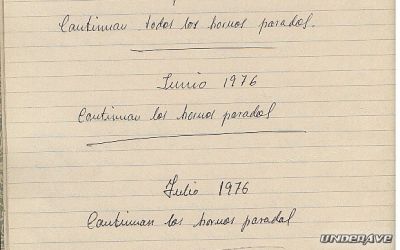 Continuan todos los hornos parados.
Junio 1976
Continuan los hornos parados
Julio 1976
Continuan los hornos parados
UNDERAVE